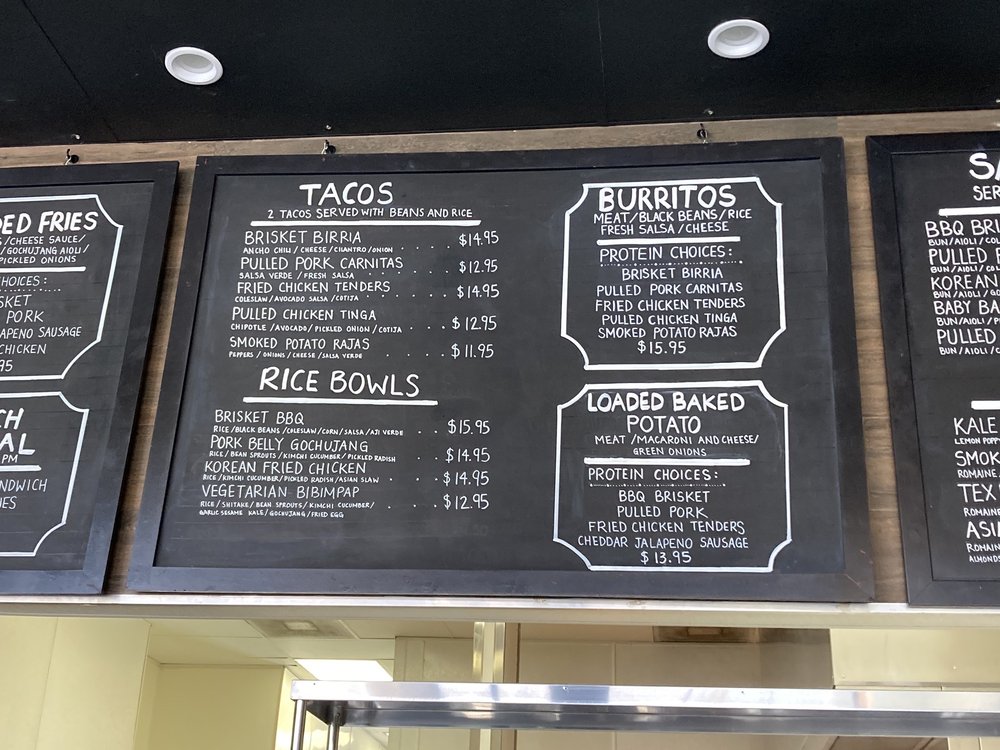 DED FRIES
/CHEESE SAUCE/
/GOCHUJANG AIOLI/
PICKLED ONIONS
CHOICES:
SKET
PORK
JALAPENO SAUSAGE
CHICKEN
95
CH
AL
PM
NDWICH
IES
TACOS
2 TACOS SERVED WITH BEANS AND RICE
BRISKET BIRRIA . . . . . $14.95
ANCHO CHILI/CHEESE/CILANTRO/ONION
PULLED PORK CARNITAS . . . . . $12.95
SALSA VERDE/FRESH SALSA
FRIED CHICKEN TENDERS . . . . . $14.95
COLESLAW/AVOCADO SALSA/COTIJA
PULLED CHICKEN TINGA . . . . $12.95
CHIPOTLE/AVOCADO/PICKLED ONION/COTIJA
SMOKED POTATO RAJAS . . . . . $11.95
PEPPERS/ONIONS/CHEESE/SALSA VERDE
RICE BOWLS
BRISKET BBQ . . . $15.95
RICE/BLACK BEANS/COLESLAW/CORN/SALSA/AJI VERDE
PORK BELLY GOCHUJANG . . . $14.95
RICE/BEAN SPROUTS/KIMCHI CUCUMBER/PICKLED RADISH
KOREAN FRIED CHICKEN . . . $14.95
RICE/KIMCHI CUCUMBER/PICKLED RADISH/ASIAN SLAW
VEGETARIAN BIBIMPAP . . . $12.95
RICE/SHITAKE/BEAN SPROUTS/KIMCHI CUCUMBER/
GARLIC SESAME KALE/GOCHUJANG/FRIED EGG
BURRITOS
MEAT/BLACK BEANS/RICE
FRESH SALSA/CHEESE
PROTEIN CHOICES:
BRISKET BIRRIA
PULLED PORK CARNITAS
FRIED CHICKEN TENDERS
PULLED CHICKEN TINGA
SMOKED POTATO RAJAS
$15.95
LOADED BAKED
POTATO
MEAT/MACARONI AND CHEESE/
GREEN ONIONS
PROTEIN CHOICES:
BBQ BRISKET
PULLED PORK
FRIED CHICKEN TENDERS
CHEDDAR JALAPENO SAUSAGE
$13.95
SA
SER
BBQ BRI
BUN/AIOLI/COL
PULLED P
BUN/AIOLI/COL
KOREAN
BUN/AIOLI/GO
BABY BA
BUN/AIOLI/P
PULLED
BUN/AIOLI/C
KALE
LEMON POPP
SMOK
ROMAINE
TEX
ROMAINE
ASIA
ROMAIN
ALMONDS